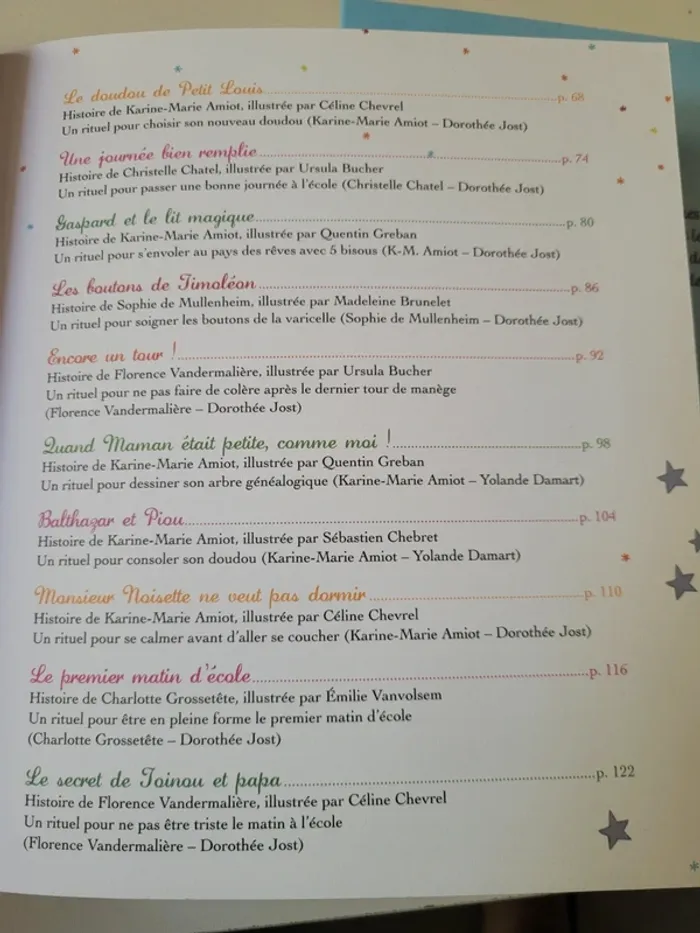 Le doudou de Petit Louis p. 68
Histoire de Karine-Marie Amiot, illustrée par Céline Chevrel
Un rituel pour choisir son nouveau doudou (Karine-Marie Amiot – Dorothée Jost)
Une journée bien remplie p. 74
Histoire de Christelle Chatel, illustrée par Ursula Bucher
Un rituel pour passer une bonne journée à l'école (Christelle Chatel – Dorothée Jost)
Gaspard et le lit magique p. 80
Histoire de Karine-Marie Amiot, illustrée par Quentin Greban
Un rituel pour s'envoler au pays des rêves avec 5 bisous (K-M. Amiot – Dorothée Jost)
Les boutons de Timoléon p. 86
Histoire de Sophie de Mullenheim, illustrée par Madeleine Brunelet
Un rituel pour soigner les boutons de la varicelle (Sophie de Mullenheim – Dorothée Jost)
Encore un tour ! p. 92
Histoire de Florence Vandermalière, illustrée par Ursula Bucher
Un rituel pour ne pas faire de colère après le dernier tour de manège
(Florence Vandermalière – Dorothée Jost)
Quand Maman était petite, comme moi ! p. 98
Histoire de Karine-Marie Amiot, illustrée par Quentin Greban
Un rituel pour dessiner son arbre généalogique (Karine-Marie Amiot – Yolande Damart)
Balthazar et Piou p. 104
Histoire de Karine-Marie Amiot, illustrée par Sébastien Chebret
Un rituel pour consoler son doudou (Karine-Marie Amiot – Yolande Damart)
Monsieur Noisette ne veut pas dormir p. 110
Histoire de Karine-Marie Amiot, illustrée par Céline Chevrel
Un rituel pour se calmer avant d'aller se coucher (Karine-Marie Amiot – Dorothée Jost)
Le premier matin d'école p. 116
Histoire de Charlotte Grossetête, illustrée par Émilie Vanvolsem
Un rituel pour être en pleine forme le premier matin d'école
(Charlotte Grossetête – Dorothée Jost)
Le secret de Toinou et papa p. 122
Histoire de Florence Vandermalière, illustrée par Céline Chevrel
Un rituel pour ne pas être triste le matin à l'école
(Florence Vandermalière – Dorothée Jost)